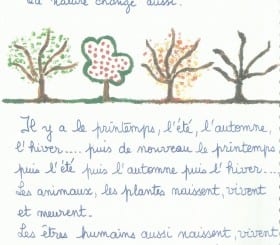 La nature change aussi.
Il y a le printemps, l'été, l'automne,
l'hiver.... puis de nouveau le printemps
puis l'été puis l'automne puis l'hiver...
Les animaux, les plantes naissent, vivent
et meurent.
Les êtres humains aussi naissent, vivent